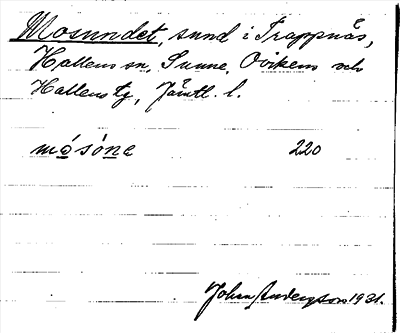 Mosundet, sund i Trappnäs,
Hallens sn, Sunne, Ovikens och
Hallens tg, Jämtl. l.
mósóne 220
Johan Anderzson 1931.